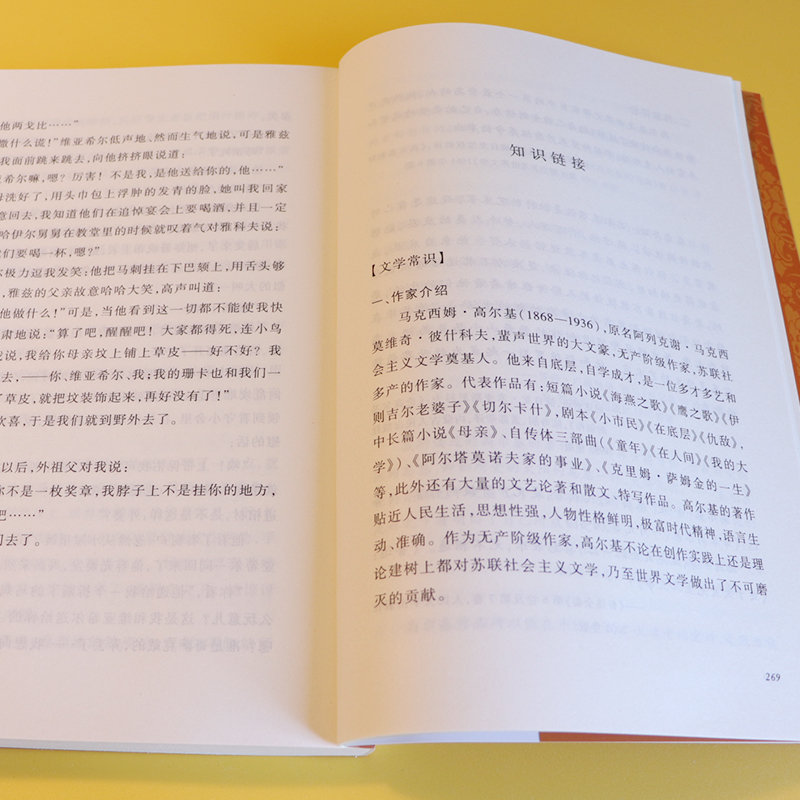 他两戈比……”
撒什么谎！”维亚希尔低声地、然而生气地说，可是雅兹
我面前跳来跳去，向他挤挤眼说道：
亚希尔嘛，嗯？厉害！不是我，是他送给你的，他……”
母洗好了，用头巾包上浮肿的发青的脸，她叫我回家
意回去，我知道他们在追悼宴会上要喝酒，并且一定
哈伊尔舅舅在教堂里的时候就叹着气对雅科夫说：
我们要喝一杯，嗯？”
尔极力逗我发笑：他把马刺挂在下巴颏上，用舌头够
，雅兹的父亲故意哈哈大笑，高声叫道：
他做什么！”可是，当他看到这一切都不能使我快
肃地说：“算了吧，醒醒吧！大家都得死，连小鸟
我说，我给你母亲坟上铺上草皮——好不好？我
去，——你、维亚希尔、我；我的珊卡也和我们一
了草皮，就把坟装饰起来，再好没有了！”
欢喜，于是我们就到野外去了。
以后，外祖父对我说：
你不是一枚奖章，我脖子上不是挂你的地方，
把……”
间去了。
知识链接
【文学常识】
一、作家介绍
马克西姆·高尔基（1868—1936），原名阿列克谢·马克西
莫维奇·彼什科夫，蜚声世界的大文豪，无产阶级作家，苏联社
会主义文学奠基人。他来自底层，自学成才，是一位多才多艺和
多产的作家。代表作品有：短篇小说《海燕之歌》《鹰之歌》《伊
则吉尔老婆子》《切尔卡什》，剧本《小市民》《在底层》《仇敌》，
中长篇小说《母亲》、自传体三部曲（《童年》《在人间》《我的大
学》）、《阿尔塔莫诺夫家的事业》、《克里姆·萨姆金的一生》
等，此外还有大量的文艺论著和散文、特写作品。高尔基的著作
贴近人民生活，思想性强，人物性格鲜明，极富时代精神，语言生
动、准确。作为无产阶级作家，高尔基不论在创作实践上还是理
论建树上都对苏联社会主义文学，乃至世界文学做出了不可磨
灭的贡献。
269